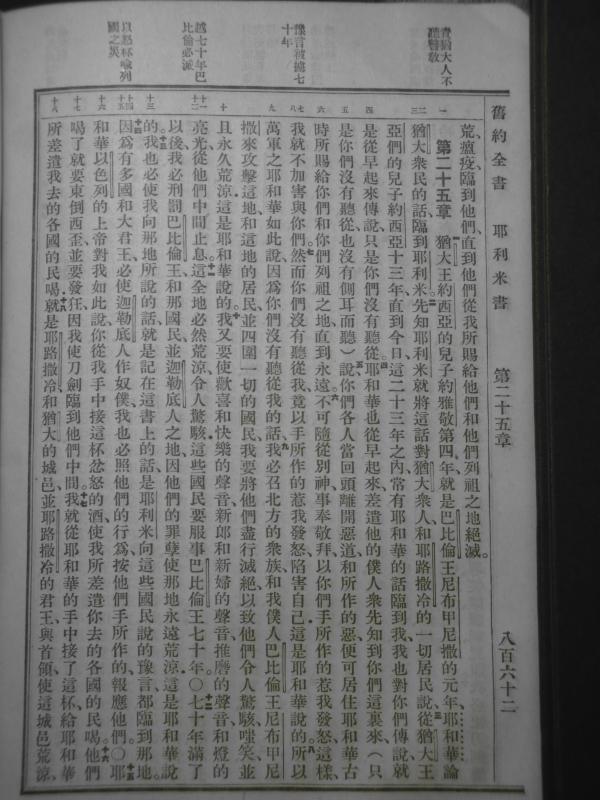 舊約全書　耶利米書　第二十五章　八百六十二
責猶大人不聽警敎
豫言被擄七十年
越七十年巴比倫必滅
以怒杯喩列國之災
荒、瘟疫、臨到他們、直到他們從我所賜給他們和他們列祖之地絕滅。
第二十五章　猶大王約西亞的兒子約雅敬第四年、就是巴比倫王尼布甲尼撒的元年、耶和華論
猶大衆民的話臨到耶利米、先知耶利米就將這話對猶大衆人和耶路撒冷的一切居民說、從猶大王
亞們的兒子約西亞十三年直到今日、這二十三年之內、常有耶和華的話臨到我、我也對你們傳說、就
是從早起來傳說、只是你們沒有聽從、耶和華也從早起來、差遣他的僕人衆先知到你們這裏來（只
是你們沒有聽從、也沒有側耳而聽）說、你們各人當回頭離開惡道、和所作的惡、便可居住耶和華古
時所賜給你們和你們列祖之地、直到永遠、不可隨從別神事奉敬拜、以你們手所作的惹我發怒、這樣、
我就不加害與你們、然而你們沒有聽從我、竟以手所作的惹我發怒、陷害自己、這是耶和華說的。所以
萬軍之耶和華如此說、因爲你們沒有聽從我的話、我必召北方的衆族和我僕人巴比倫王尼布甲尼
撒來攻擊這地、和這地的居民、並四圍一切的國民、我要將他們盡行滅絕、以致他們令人驚駭、嗤笑、並
且永久荒涼、這是耶和華說的、我又要使歡喜和快樂的聲音、新郎和新婦的聲音、推磨的聲音、和燈的
亮光、從他們中間止息、這全地必然荒涼、令人驚駭、這些國民要服事巴比倫王七十年。〇七十年滿了
以後、我必刑罰巴比倫王和那國民、並迦勒底人之地、因他們的罪孽使那地永遠荒涼、這是耶和華說
的、我也必使我向那地所說的話、就是記在這書上的話、是耶利米向這些國民說的豫言、都臨到那地。
因爲有多國和大君王、必使迦勒底人作奴僕、我也必照他們的行爲、按他們手所作的、報應他們。〇耶
和華以色列的上帝對我如此說、你從我手中接這杯忿怒的酒、使我所差遣你去的各國的民喝、他們
喝了、就要東倒西歪、並要發狂、因我使刀劍臨到他們中間、我就從耶和華的手中接了這杯、給耶和華
所差遣我去的各國的民喝、就是耶路撒冷、和猶大的城邑、並耶路撒冷的君王與首領、使這城邑荒涼、